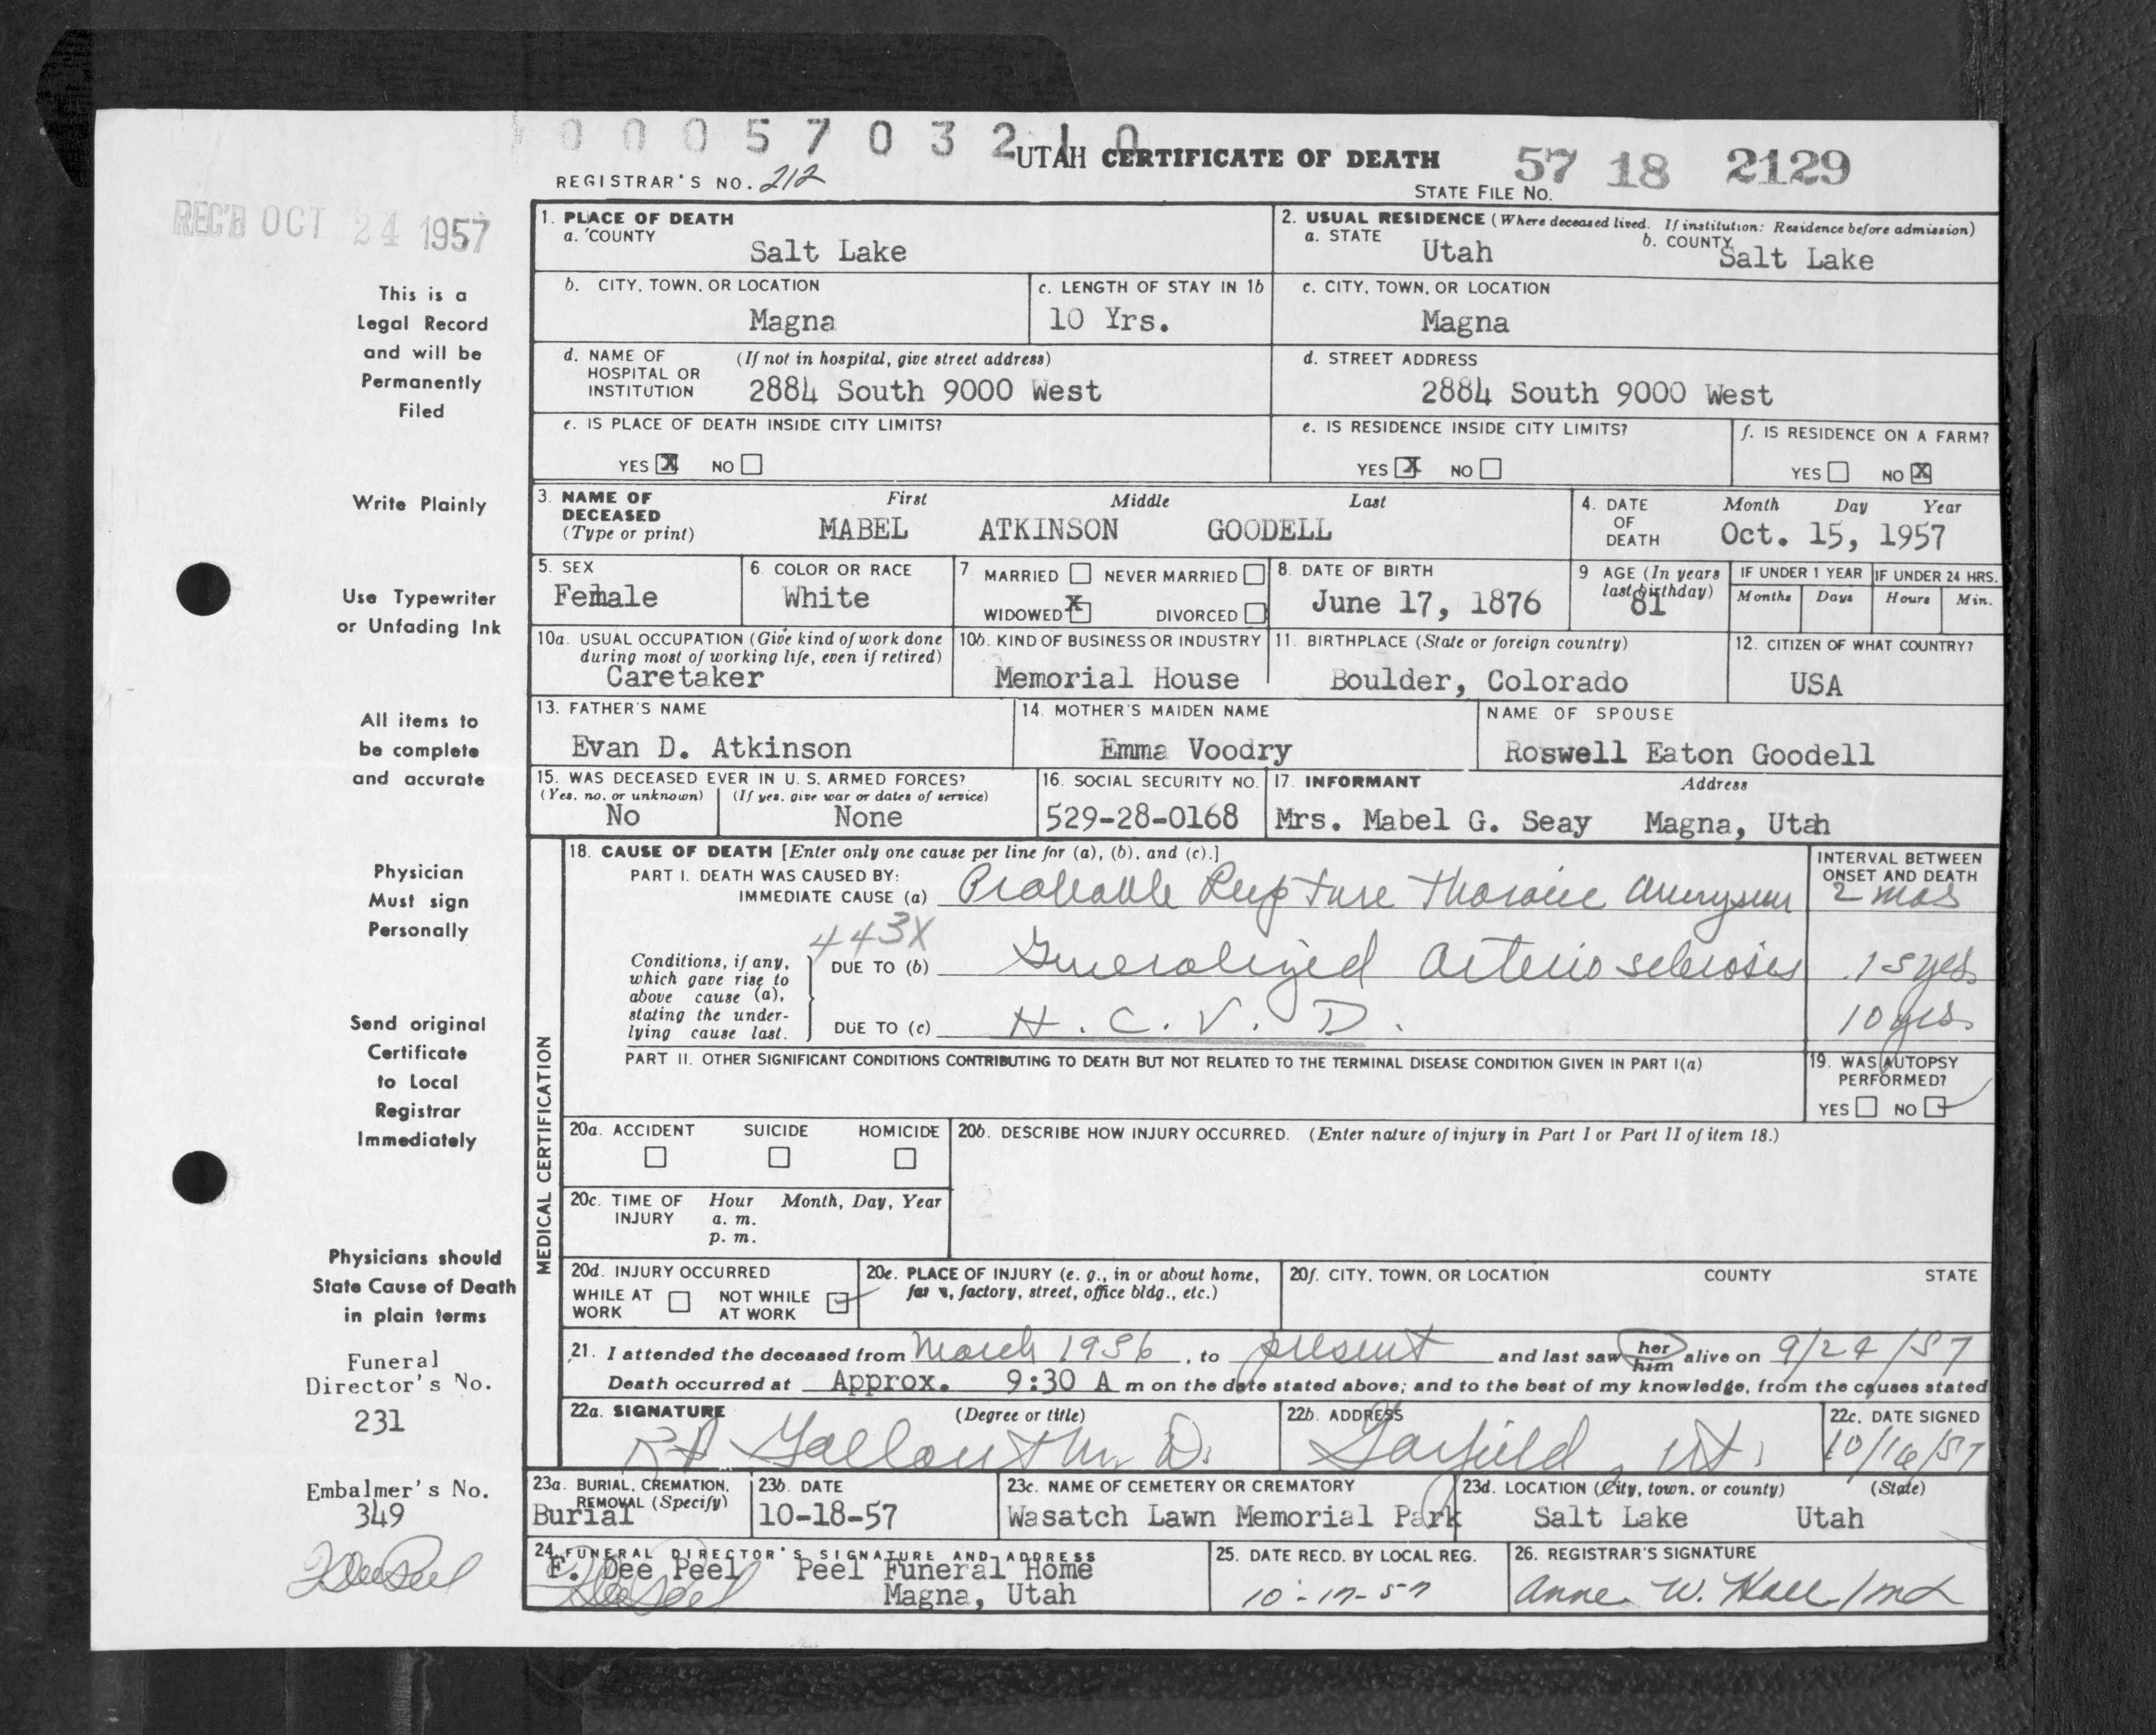 0 0 0 5 7 0 3 2 1 0
UTAH CERTIFICATE OF DEATH
57 18 2129
REGISTRAR'S NO. 212
STATE FILE NO.
REC'D OCT 24 1957
This is a
Legal Record
and will be
Permanently
Filed
Write Plainly
Use Typewriter
or Unfading Ink
All items to
be complete
and accurate
Physician
Must sign
Personally
Send original
Certificate
to Local
Registrar
Immediately
Physicians should
State Cause of Death
in plain terms
Funeral
Director's No.
231
Embalmer's No.
349
1. PLACE OF DEATH
a. COUNTY
Salt Lake
2. USUAL RESIDENCE (Where deceased lived. If institution: Residence before admission)
a. STATE Utah b. COUNTY Salt Lake
b. CITY, TOWN, OR LOCATION
Magna
c. LENGTH OF STAY IN 1b
10 Yrs.
c. CITY, TOWN, OR LOCATION
Magna
d. NAME OF HOSPITAL OR INSTITUTION (If not in hospital, give street address)
2884 South 9000 West
d. STREET ADDRESS
2884 South 9000 West
e. IS PLACE OF DEATH INSIDE CITY LIMITS?
YES X NO
e. IS RESIDENCE INSIDE CITY LIMITS?
YES X NO
f. IS RESIDENCE ON A FARM?
YES NO X
3. NAME OF DECEASED (Type or print)
First Middle Last
MABEL ATKINSON GOODELL
4. DATE OF DEATH
Month Day Year
Oct. 15, 1957
5. SEX
Female
6. COLOR OR RACE
White
7. MARRIED NEVER MARRIED
WIDOWED X DIVORCED
8. DATE OF BIRTH
June 17, 1876
9 AGE (In years last birthday)
81
IF UNDER 1 YEAR
Months Days
IF UNDER 24 HRS.
Hours Min.
10a. USUAL OCCUPATION (Give kind of work done during most of working life, even if retired)
Caretaker
10b. KIND OF BUSINESS OR INDUSTRY
Memorial House
11. BIRTHPLACE (State or foreign country)
Boulder, Colorado
12. CITIZEN OF WHAT COUNTRY?
USA
13. FATHER'S NAME
Evan D. Atkinson
14. MOTHER'S MAIDEN NAME
Emma Voodry
NAME OF SPOUSE
Roswell Eaton Goodell
15. WAS DECEASED EVER IN U. S. ARMED FORCES?
(Yes, no, or unknown) (If yes, give war or dates of service)
No None
16. SOCIAL SECURITY NO.
529-28-0168
17. INFORMANT Address
Mrs. Mabel G. Seay Magna, Utah
MEDICAL CERTIFICATION
18. CAUSE OF DEATH [Enter only one cause per line for (a), (b), and (c).]
PART I. DEATH WAS CAUSED BY:
IMMEDIATE CAUSE (a) Probable Rupture Thoracic Aneurysm
INTERVAL BETWEEN ONSET AND DEATH
2 mos
443X
Conditions, if any, which gave rise to above cause (a), stating the underlying cause last.
DUE TO (b) Generalized Arteriosclerosis 15 yrs
DUE TO (c) H. C. V. D. 10 yrs.
PART II. OTHER SIGNIFICANT CONDITIONS CONTRIBUTING TO DEATH BUT NOT RELATED TO THE TERMINAL DISEASE CONDITION GIVEN IN PART I(a)
19. WAS AUTOPSY PERFORMED?
YES NO ✓
20a. ACCIDENT SUICIDE HOMICIDE
20b. DESCRIBE HOW INJURY OCCURRED. (Enter nature of injury in Part I or Part II of item 18.)
20c. TIME OF INJURY Hour Month, Day, Year
a. m.
p. m.
20d. INJURY OCCURRED
WHILE AT WORK NOT WHILE AT WORK ✓
20e. PLACE OF INJURY (e. g., in or about home, farm, factory, street, office bldg., etc.)
20f. CITY, TOWN, OR LOCATION COUNTY STATE
21. I attended the deceased from March 1956, to present and last saw her him alive on 9/24/57
Death occurred at Approx. 9:30 A m on the date stated above; and to the best of my knowledge, from the causes stated
22a. SIGNATURE (Degree or title)
M. D.
22b. ADDRESS
Garfield, Ut.
22c. DATE SIGNED
10/16/57
23a. BURIAL, CREMATION, REMOVAL (Specify)
Burial
23b. DATE
10-18-57
23c. NAME OF CEMETERY OR CREMATORY
Wasatch Lawn Memorial Park
23d. LOCATION (City, town, or county) (State)
Salt Lake Utah
24. FUNERAL DIRECTOR'S SIGNATURE AND ADDRESS
F. Dee Peel Peel Funeral Home
Magna, Utah
25. DATE RECD. BY LOCAL REG.
10-17-57
26. REGISTRAR'S SIGNATURE
Anne W. Hall/md